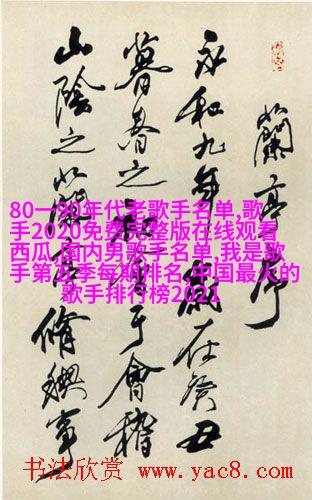 蘭亭序
永和九年歲在癸丑
暮春之初會于會稽
山陰之蘭亭脩禊事
80一90年代老歌手名单,歌
手2020免费完整版在线观看
西瓜,国内男歌手名单,我是歌
手第五季每期排名,中国最火的
歌手排行榜2021
书法欣赏 www.yac8.com